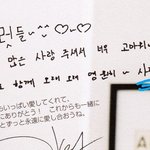 멋들~^^ ♡♡
많은 사랑 주셔서 너무 고마워
함께 오래 오래 영원히 ~ 사
いっぱい愛してくれて、
にありがとう! これからも一緒に
とずっと永遠に愛し合おうね。